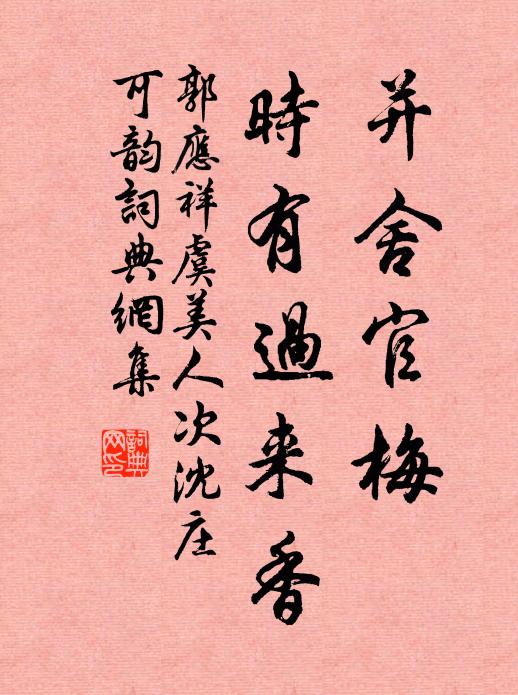 并舍官梅
時有過来香
郭應祥虞美人次沈庄
可韵詞典網集
詞典网印